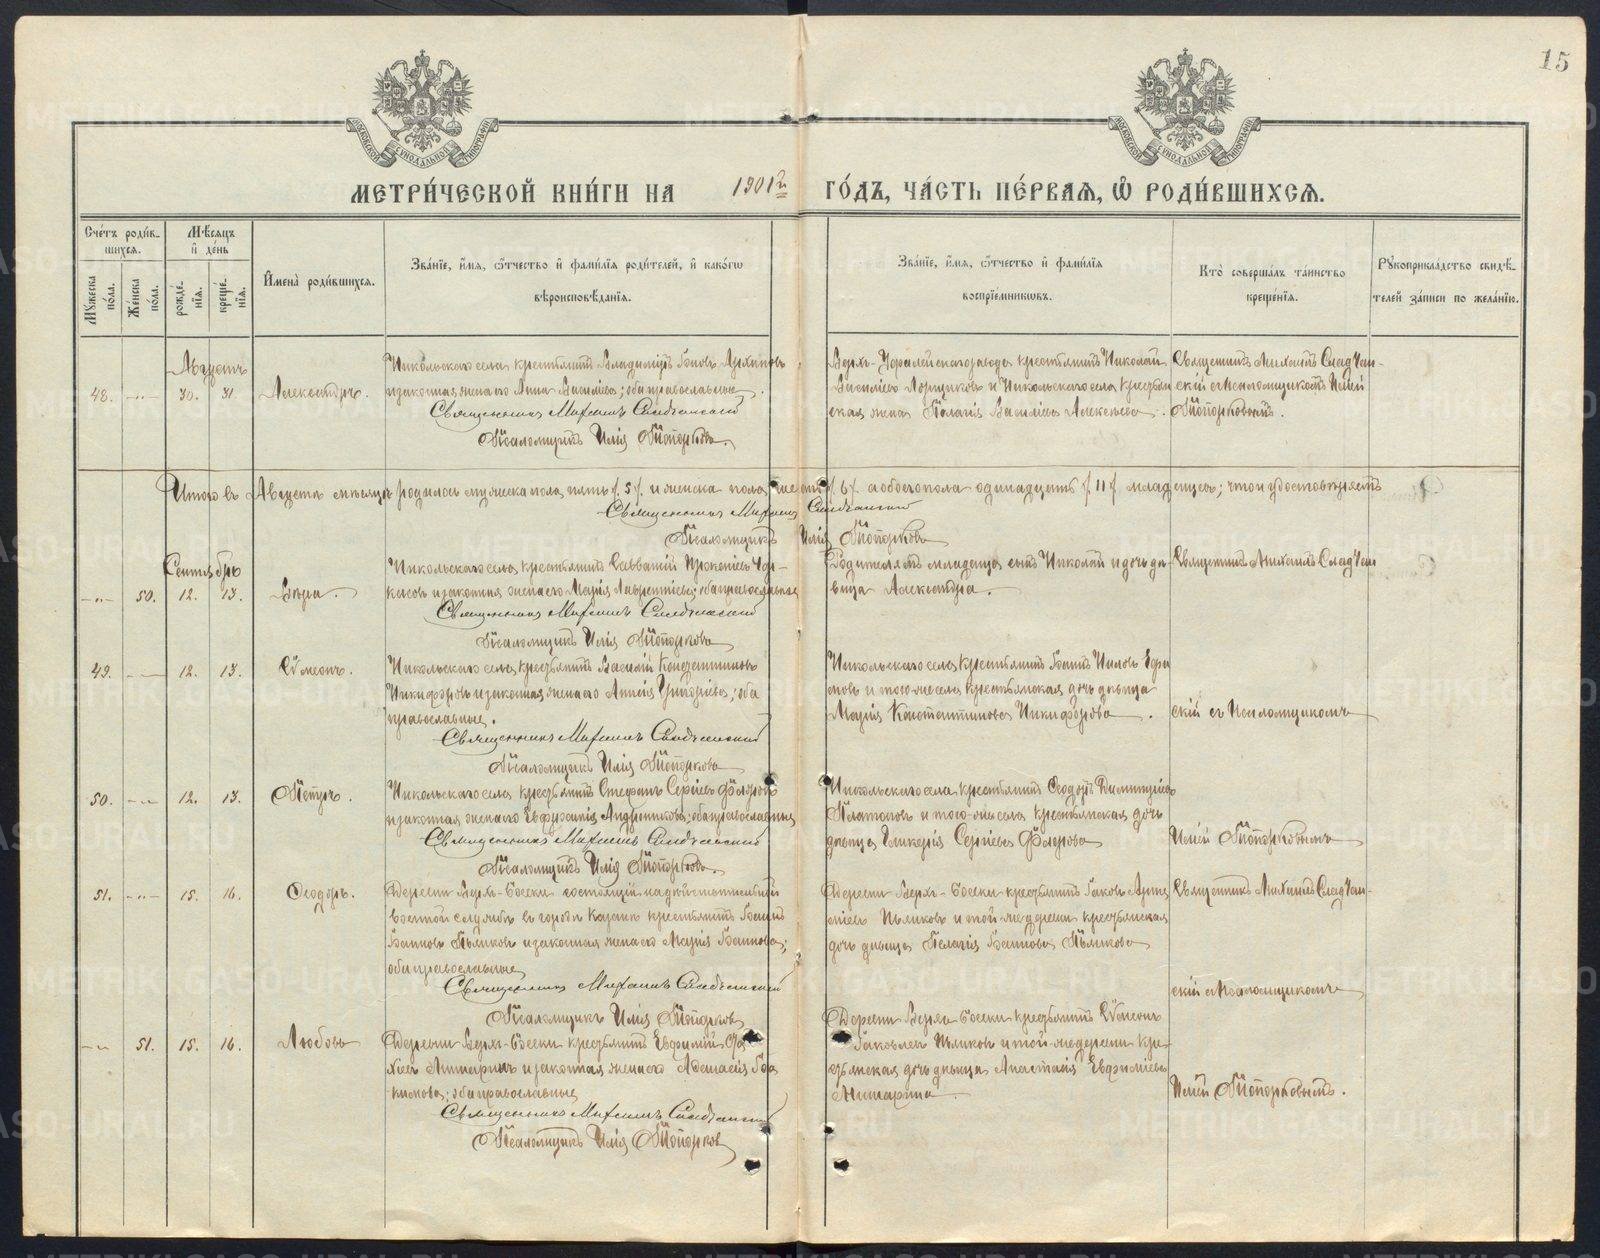 15
МЕТРИ́ЧЕСКОЙ КНИ́ГИ НА 1901й ГО́ДЪ, ЧА́СТЬ ПЕ́РВАЯ, Ѿ РОДИ́ВШИХСЯ.
Сче́тъ роди́вшихся.
Мꙋжеска по́ла.
Же́нска по́ла.
Мѣ́сяцъ и҆ де́нь
рожде́нїя.
креще́нїя.
И҆мена̀ роди́вшихся.
Зва́нїе, и҆́мя, ѻ҆́тчество и҆ фами́лїя роди́телей, и҆ како́гѡ вѣроисповѣ́данїя.
Зва́нїе, и҆́мя, ѻ҆́тчество и҆ фами́лїя воспрїе́мникѡвъ.
Кто̀ соверша́лъ та́инство креще́нїя.
Рꙋкоприкла́дство свидѣ́телей за́писи по жела́нїю.
Августъ
48. -"- 30. 31. Александръ.
Никольскаго села крестьянинъ Владимiръ
и законная жена его Анна Васильева; оба православные.
Священникъ Михаилъ
Псаломщикъ Илiя Топорковъ.
Верхъ- завода крестьянинъ Николай
Васильевъ и Никольскаго села крестьян
ская жена Пелагiя Васильева Алексеева.
Священникъ Михаилъ
скiй съ Псаломщикомъ Илiей
Топорковымъ.
Итого въ Августѣ мѣсяцѣ родилось мужеска пола пять /5/ и женска пола шесть /6/ а обоего пола одинадцать /11/ младенцевъ; что и удостовѣряютъ
Священникъ Михаилъ
Псаломщикъ Илiя Топорковъ
Сентябрь
-"- 50. 12. 13. Вѣра.
Никольскаго села крестьянинъ Савватiй
и законная жена его Марiя Лаврентiева; оба православные
Священникъ Михаилъ
Псаломщикъ Илiя Топорковъ
Родителямъ младенца сынъ Николай и дочь дѣ-
вица Александра.
Священникъ Михаилъ
49. -"- 12. 13. Сѵмеонъ.
Никольскаго села крестьянинъ Василiй Константиновъ
Никифоровъ и законная жена его Анна Григорiева; оба
православные.
Священникъ Михаилъ
Псаломщикъ Илiя Топорковъ
Никольскаго села крестьянинъ
и того-же села крестьянская дочь дѣвица
Марiя Константинова Никифорова.
скiй съ Псаломщикомъ
50. -"- 12. 13. Петръ.
Никольскаго села крестьянинъ Стефанъ Сергiевъ Флоровъ
и законная жена его Евфросинiя Андроникова; оба православные
Священникъ Михаилъ
Псаломщикъ Илiя Топорковъ.
Никольскаго села крестьянинъ Ѳеодоръ Димитрiевъ
Платоновъ и того-же села крестьянская дочь
дѣвица Гликерiя Сергiева Флорова
Илiей Топорковымъ
51. -"- 15. 16. Ѳеодоръ.
Деревни Верхъ-Боевки состоящiй на дѣйствительной
военной службѣ въ городѣ Казани крестьянинъ Iоаннъ
Iоанновъ Пьянковъ и законная жена его Марiя Iоаннова;
оба православные
Священникъ Михаилъ
Псаломщикъ Илiя Топорковъ
Деревни Верхъ-Боевки крестьянинъ Iаковъ
Пьянковъ и той-же деревни крестьянская
дочь дѣвица Пелагiя Iоаннова Пьянкова
Священникъ Михаилъ
скiй съ Псаломщикомъ
-"- 51. 15. 16. Любовь
Деревни Верхъ-Боевки крестьянинъ Евфимiй
и законная жена его Афанасiя
кимова; оба православные
Священникъ Михаилъ
Псаломщикъ Илiя Топорковъ
Деревни Верхъ-Боевки крестьянинъ Сѵмеонъ
Iаковлевъ Пьянковъ и той-же деревни кре-
стьянская дочь дѣвица Анастасiя Евфимiева
Илiей Топорковымъ.
METRIKI.GASO-URAL.RU